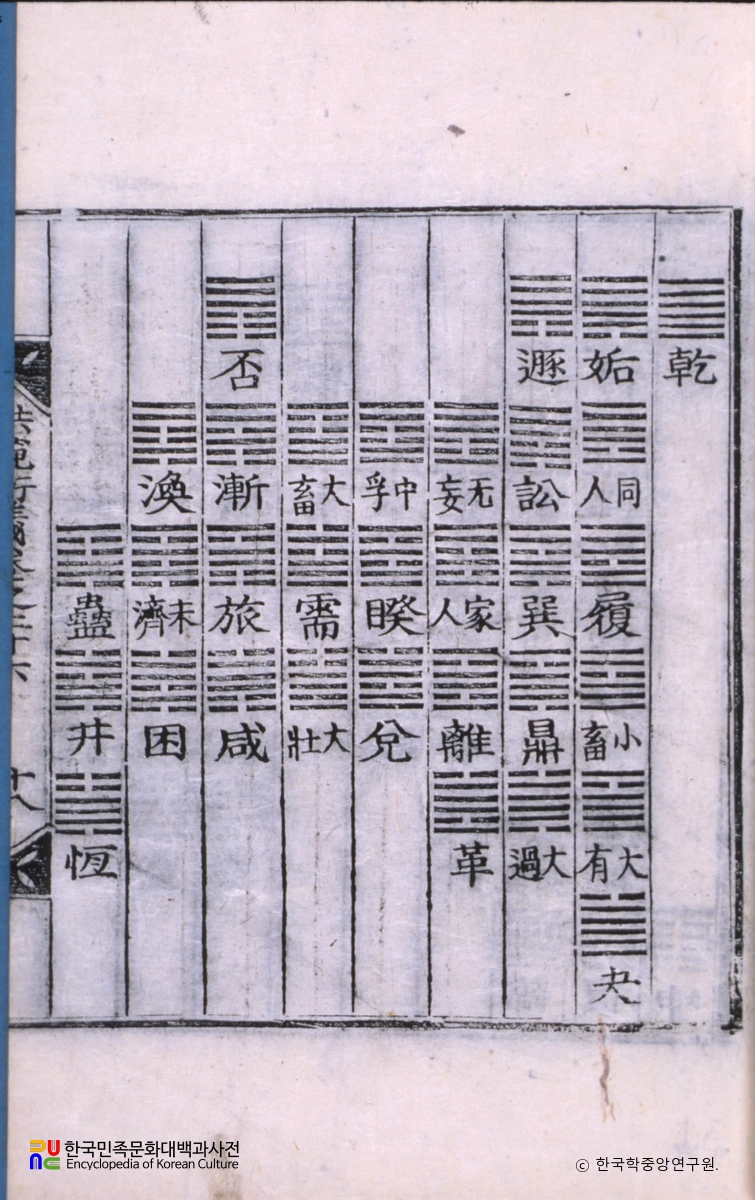 乾
姤 同人 履 小畜 大有 夬
遯 訟 巽 鼎 大過
无妄 家人 離 革
中孚 睽 兌
大畜 需 大壯
否 漸 旅 咸
渙 未濟 困
蠱 井 恆
洪範衍義卷之二十六
十八
한국민족문화대백과사전
Encyclopedia of Korean Culture
ⓒ 한국학중앙연구원.